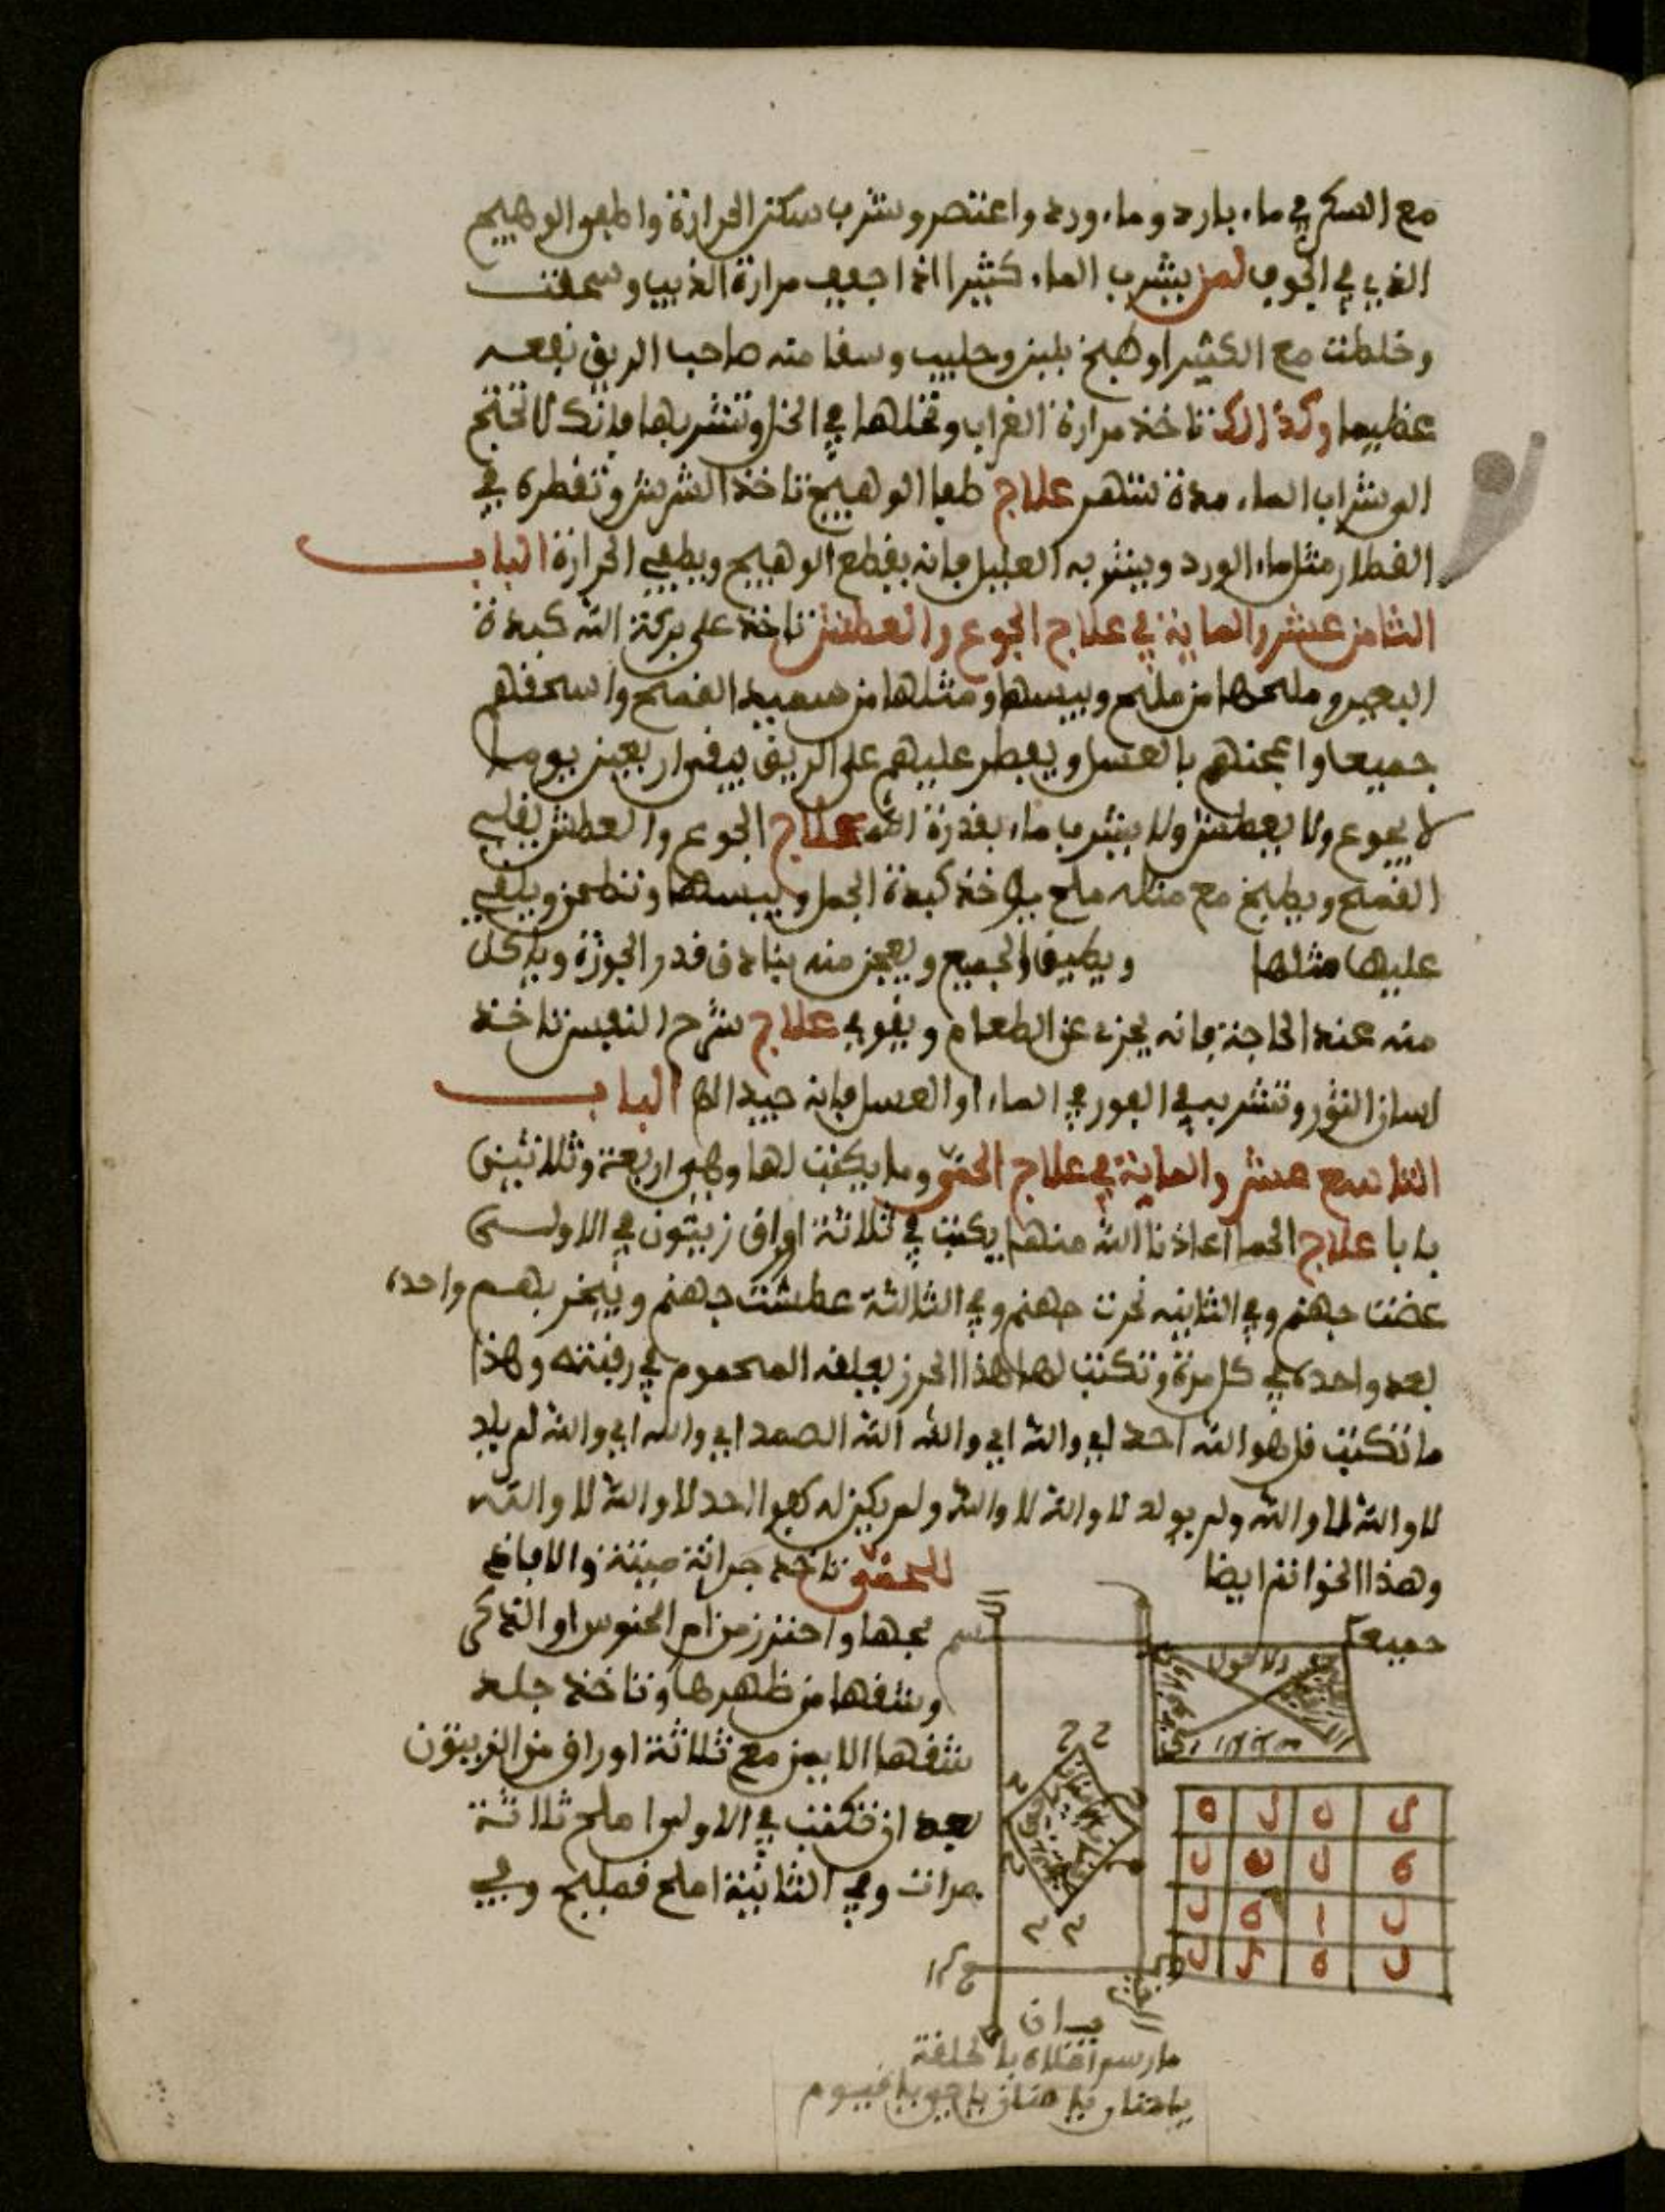 مع السكر في ماء بارد وماء ورد واعتصر وشرب سكن الحرارة واطفى الوهيج
الذي في الجوف لمن يشرب الماء كثيرا اذا جفف مرارة الذيب وسحقت
وخلطت مع الكثيرا وطبخ بلبن وحليب وسقا منه صاحب الريق نفعه
عظيما وكذالك تاخذ مرارة الغراب وتخلها في الخل وتشربها فانك لا تحتج
الى شراب الماء مدة شهر علاج طفا الوهيج تاخذ الشرش وتقطره في
القطار مثل ماء الورد ويشربه العليل فانه يقطع الوهيج ويطفي الحرارة الباب
الثامن عشر والماية في علاج الجوع والعطش تاخذ على بركة الله كبدة
البعير وملحها من مليح ويبسها ومثلها من سميد القمح واسحقهم
جميعا واعجنهم بالعسل ويفطر عليهم على الريق يبقى اربعين يوما
لا يجوع ولا يعطش ولا يشرب ماء بقدرة الله علاج الجوع والعطش يقلي
القمح ويطبخ مع مثله ملح ياخذ كبدة الجمل وييبسها وتطحن ويلقي
عليها مثلها ويضيف الجميع ويعجن منه بنادق قدر الجوزة وياكل
منه عند الحاجة فانه يجزء عن الطعام ويقوي علاج شرح النفس تاخذ
لسان الثور وتشربه في الفور في الماء او العسل فانه جيد الباب
التاسع عشر والماية في علاج الحمى وما يكتب لها وهي اربعة وثلاثين
بابا علاج الحما اعاذنا الله منها يكتب في ثلاثة اوراق زيتون في الاولى
عضت جهنم وفي الثانيه نخرت جهنم وفي الثالثة عطشت جهنم ويبخر بهم واحدة
بعد واحدة في كل مرة وتكتب لها هذا الحرز يعلقه المحموم في رقبته وهذا
ما تكتب قل هو الله احد اي والله اي والله الله الصمد اي والله اي والله لم يلد
لا والله لا والله ولم يولد لا والله لا والله ولم يكن له كفوا احد لا والله لا والله
وهذا الخواتم ايضا للحمى تاخذ جرانة ميتة والا فاذ
جميعا بحها واحترز من ام الحنوس او التدكى
وشقها من ظهرها وتاخذ جلد
شقها الايمن مع ثلاثة اوراق من الزيتون
بعد ان تكتب في الاولى املح ثلاثة
مرات وفي الثانية املح فمليح وفي
ه ل ه ل
ل ه ل ه
ل ه ا ل
ل ل ه ل
يا حنان يا منان يا حي يا قيوم